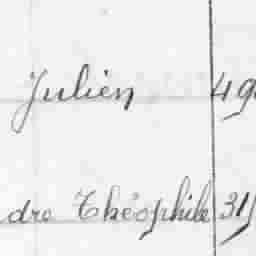 Julien 49
dre Théophile 31